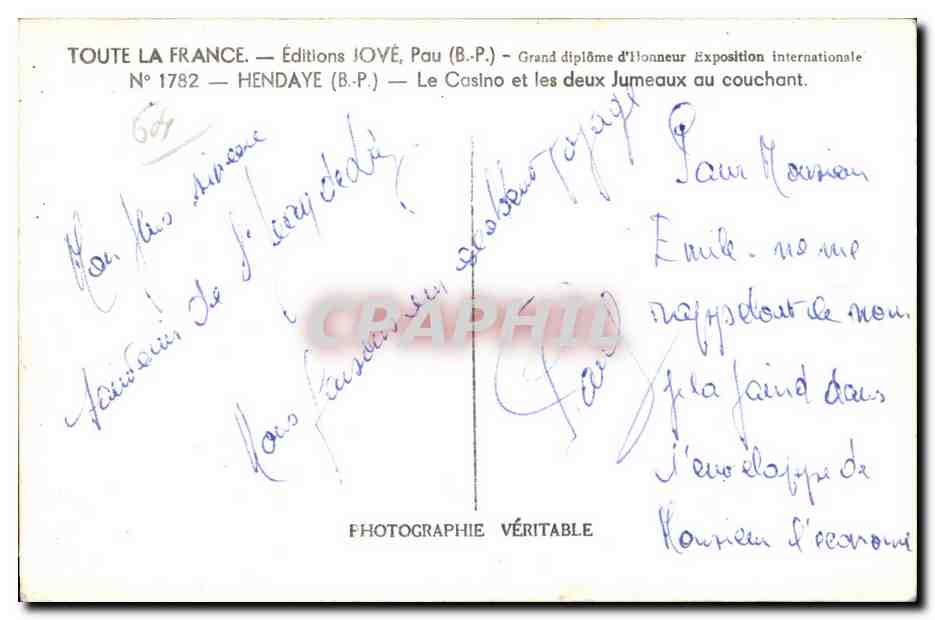 TOUTE LA FRANCE. — Éditions JOVÉ, Pau (B.-P.) - Grand diplôme d'Honneur Exposition internationale
N° 1782 — HENDAYE (B.-P.) — Le Casino et les deux Jumeaux au couchant.
64
Mon plus sincère
de St
Nous bon voyage
Pour Monsieur
Emile. ne me
rappelant de nom
je la joind dans
l'enveloppe de
Monsieur l'économe
CPAPHIL
PHOTOGRAPHIE VÉRITABLE